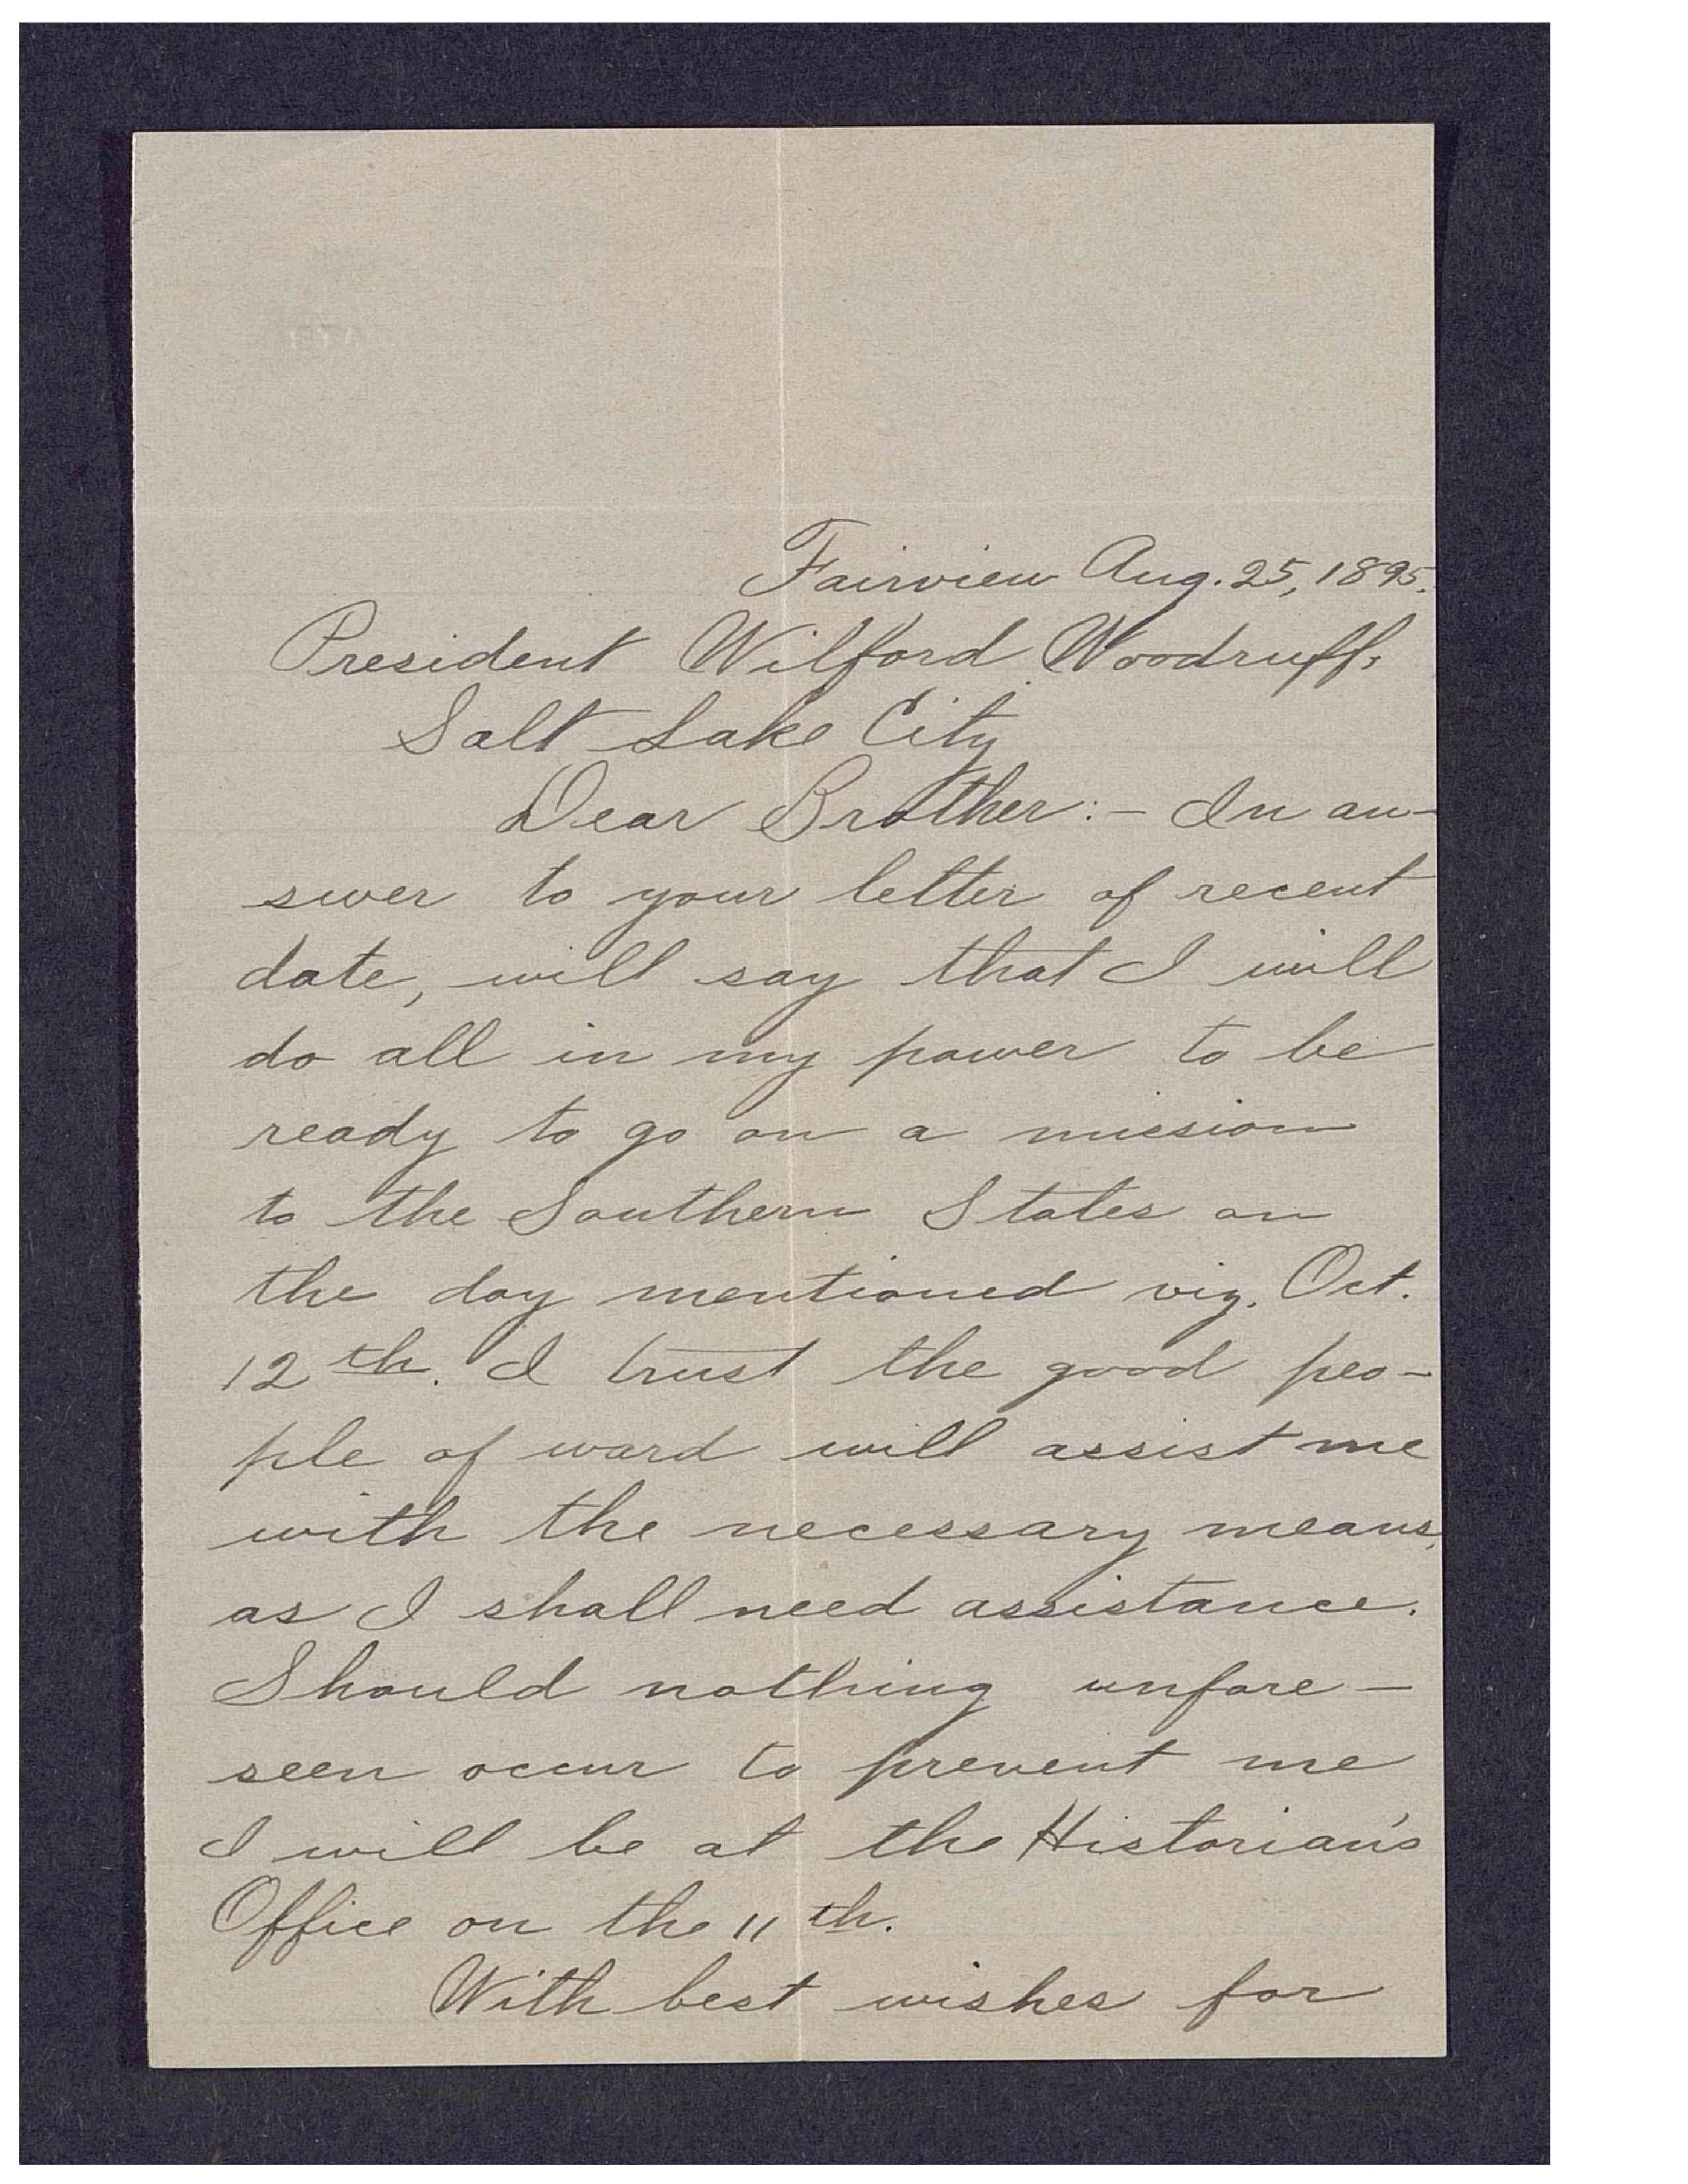 Fairview Aug. 25, 1895.
President Wilford Woodruff,
Salt Lake City
Dear Brother:- In an-
swer to your letter of recent
date, will say that I will
do all in my power to be
ready to go on a mission
to the Southern States on
the day mentioned viz. Oct.
12th. I trust the good peo-
ple of ward will assist me
with the necessary means,
as I shall need assistance.
Should nothing unfore-
seen occur to prevent me
I will be at the Historian's
Office on the 11th.
With best wishes for